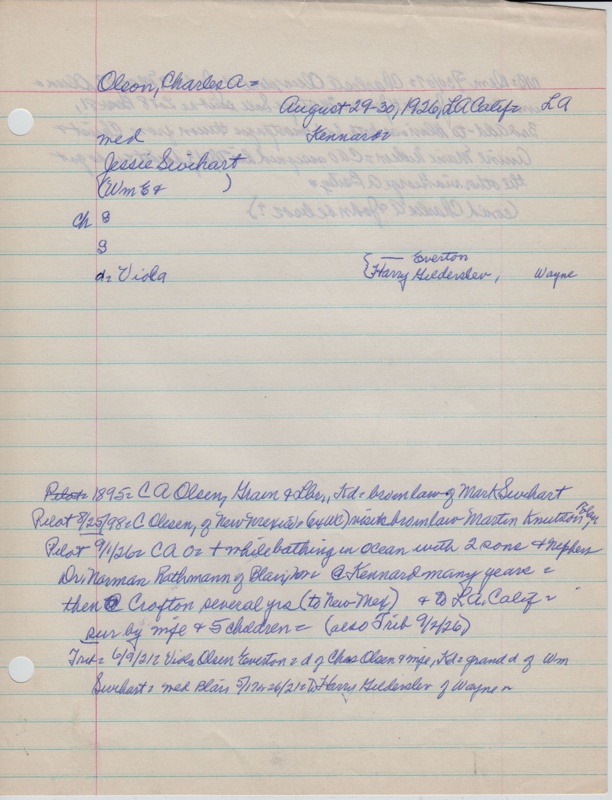 Olson, Charles A =
August 29-30, 1926, LA Calif = LA
med Kennard =
Jessie Swihart
(Wm E & )
ch S
S
d = Viola { — Everton
{ Harry Gilderslev, Wayne
Pilot = 1895 = C A Olsen, Grain & Lbr., Kd = broinlaw of Mark Swihart
Pilot 8/25/98 = C Olesen, of New Mexico = visits broinlaw Martin Knutson
Pilot 9/1/26 = CA O = + while bathing in ocean with 2 sons & nephew
Dr. Norman Rathmann of Blair, @ Kennard many years =
then @ Crofton several yrs (to New Mex) & to L.A. Calif =
sur by wife & 5 children = (also Trib 9/2/26)
Trib = 6/9/21 = Viola Olsen Everton = d of Chas Olsen & wife, Kd = grand d. of Wm
Swihart = med Blair to Harry Gilderslev of Wayne